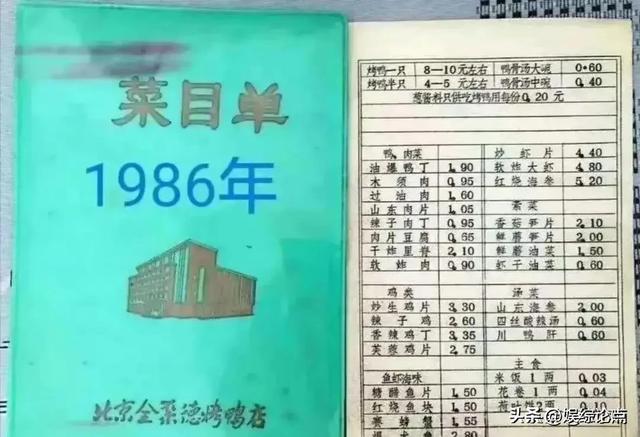 菜目单
1986年
北京全聚德烤鸭店
烤鸭一只 8—10元左右 鸭骨汤大碗 0.60
烤鸭半只 4—5元左右 鸭骨汤中碗 0.40
葱酱料只供吃烤鸭用每份0.20元
鸭、肉菜
油爆鸭丁 1.90
木须肉 0.95
过油肉 1.60
山东肉片 1.05
辣子肉丁 0.95
肉片豆腐 0.65
干炸里脊 2.10
软炸肉 0.90
鸡类
炒生鸡片 3.30
辣子鸡 2.60
香辣鸡丁 3.35
芙蓉鸡片 2.75
鱼虾海味
糖醋鱼片 1.50
红烧鱼块 1.50
赛螃蟹 1.55
炒虾片 4.40
软炸大虾 4.80
红烧海参 5.20
素菜
香菇笋片 2.10
鲜蘑笋片 2.00
鲜蘑油菜 1.50
虾干油菜 0.60
汤菜
山东海参 2.00
四丝酸辣汤 0.60
川鸭肝 0.60
主食
米饭1两 0.03
花卷1两 0.04
荷叶饼2
头条@娱综论斋